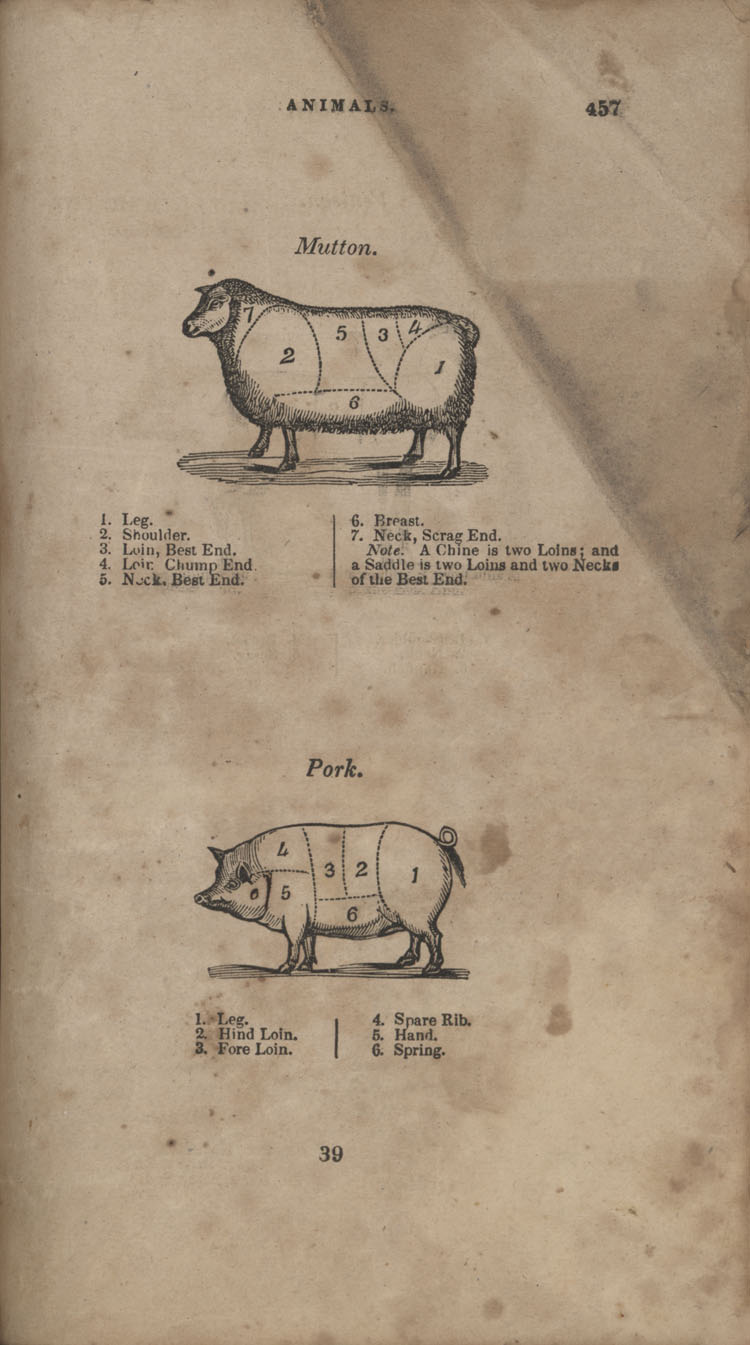 ANIMALS. 457
Mutton.
7
5
3
4
2
1
6
1. Leg.
2. Shoulder.
3. Loin, Best End.
4. Loin, Chump End.
5. Neck, Best End.
6. Breast.
7. Neck, Scrag End.
Note. A Chine is two Loins; and
a Saddle is two Loins and two Necks
of the Best End.
Pork.
4
3
2
1
6
5
6
1. Leg.
2. Hind Loin.
3. Fore Loin.
4. Spare Rib.
5. Hand.
6. Spring.
39